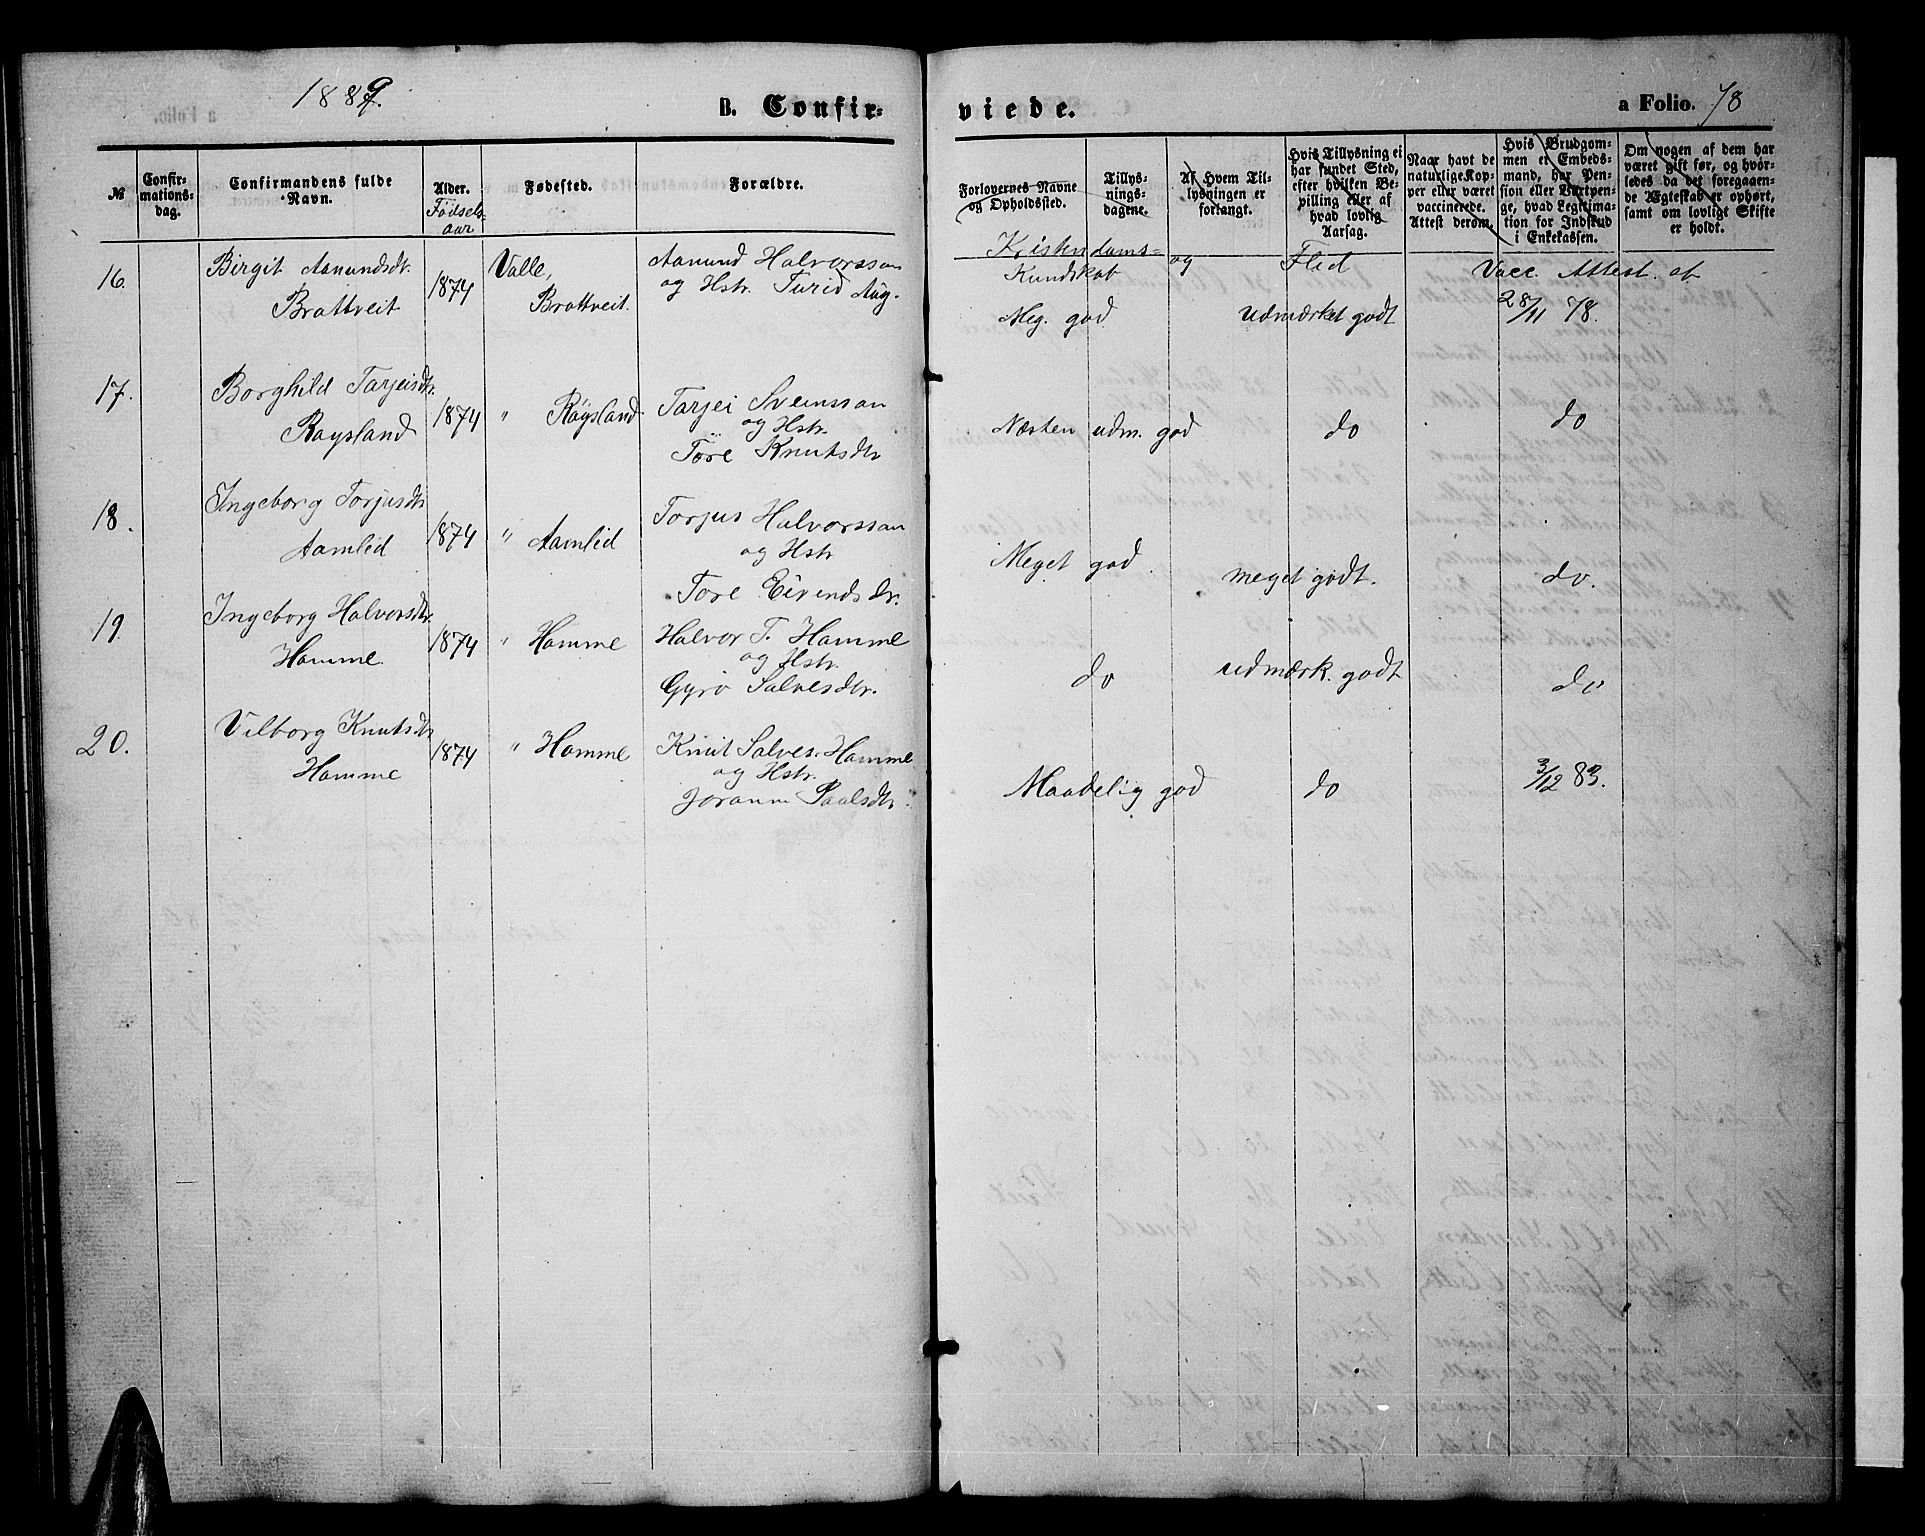 1889.
B. Confir-
viede.
a Folio. 78
№
Confir-
mations-
dag.
Confirmandens fulde
Navn.
Alder.
Födsels-
aar
Fødested.
Forældre.
Forlovernes Navne
og Opholdssted.
Tillys-
nings-
dagene.
Af Hvem Til-
lysningen er
forlangt.
Hvis Tillysning ei
har fundet Sted,
efter hvilken Be-
villing eller af
hvad lovlig
Aarsag.
Naar havt de
naturlige Kop-
per eller været
vaccinerede.
Attest derom.
Hvis Brudgom-
men er Embeds-
mand, har Pen-
sion eller Vartpen-
ge, hvad Legitima-
tion for Indskud
i Enkekassen.
Om nogen af dem har
været gift før, og hvor-
ledes da det foregaaen-
de Ægteskab er ophørt,
samt om lovligt Skifte
er holdt.
Kristendoms-
Kundskab og Flid Vacc. Attest af
16. Birgit Aanundsdt. 1874 Valle, Aanund Halvorssan
Brottveit Brottveit. og Hstr. Turid Aug.
Meg. god udmærket godt 28/11 78.
17. Borghild Tarjeisdtr. 1874 " Röysland Tarjei Svenssan
Röysland og Hstr.
Töre Knutsdtr
Næsten udm. god do do
18. Ingeborg Torjusdtr 1874 " Aamlid Torjus Halvorssan
Aamlid og Hstr
Tore Eivindsdr.
Meget god. meget godt. do.
19. Ingeborg Halvorsdtr. 1874 " Homme Halvor T. Homme
Homme og Hstr.
Gyro Salvesdtr.
do udmærk. godt do
20. Vilborg Knutsdtr 1874 " Homme Knut Salves. Homme
Homme og Hstr.
Joraann Paalsdtr.
Maadelig god do 3/12 83.